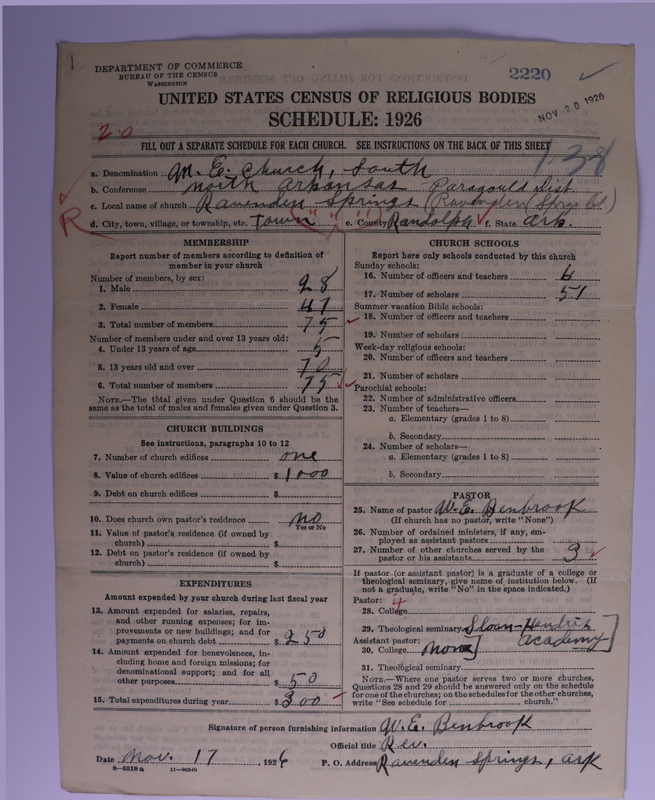 1
DEPARTMENT OF COMMERCE
BUREAU OF THE CENSUS
WASHINGTON
2220
UNITED STATES CENSUS OF RELIGIOUS BODIES
SCHEDULE: 1926
NOV 20 1926
20
FILL OUT A SEPARATE SCHEDULE FOR EACH CHURCH. SEE INSTRUCTIONS ON THE BACK OF THIS SHEET
1-38
a. Denomination M. E. Church, South
b. Conference North Arkansas Paragould Dist.
c. Local name of church Ravenden Springs (Ravenden Sprgs Ct)
R d. City, town, village, or township, etc. Town " " e. County Randolph f. State Ark.
MEMBERSHIP
Report number of members according to definition of member in your church
Number of members, by sex:
1. Male 28
2. Female 47
3. Total number of members 75
Number of members under and over 13 years old:
4. Under 13 years of age 5
5. 13 years old and over 70
6. Total number of members 75
NOTE.—The total given under Question 6 should be the same as the total of males and females given under Question 3.
CHURCH BUILDINGS
See instructions, paragraphs 10 to 12
7. Number of church edifices one
8. Value of church edifices $ 1000
9. Debt on church edifices $
10. Does church own pastor's residence no
Yes or No
11. Value of pastor's residence (if owned by church) $
12. Debt on pastor's residence (if owned by church) $
EXPENDITURES
Amount expended by your church during last fiscal year
13. Amount expended for salaries, repairs, and other running expenses; for improvements or new buildings; and for payments on church debt $ 250
14. Amount expended for benevolences, including home and foreign missions; for denominational support; and for all other purposes $ 50
15. Total expenditures during year $ 300
CHURCH SCHOOLS
Report here only schools conducted by this church
Sunday schools:
16. Number of officers and teachers 6
17. Number of scholars 51
Summer vacation Bible schools:
18. Number of officers and teachers
19. Number of scholars
Week-day religious schools:
20. Number of officers and teachers
21. Number of scholars
Parochial schools:
22. Number of administrative officers
23. Number of teachers—
a. Elementary (grades 1 to 8)
b. Secondary
24. Number of scholars—
a. Elementary (grades 1 to 8)
b. Secondary
PASTOR
25. Name of pastor W. E. Benbrook
(If church has no pastor, write "None")
26. Number of ordained ministers, if any, employed as assistant pastors
27. Number of other churches served by the pastor or his assistants 3
If pastor (or assistant pastor) is a graduate of a college or theological seminary, give name of institution below. (If not a graduate, write "No" in the space indicated.)
Pastor: 4
28. College
29. Theological seminary Sloan-Hendrix
Assistant pastor: Academy]
30. College none]
31. Theological seminary
NOTE.—Where one pastor serves two or more churches, Questions 28 and 29 should be answered only on the schedule for one of the churches; on the schedules for the other churches, write "See schedule for church."
Signature of person furnishing information W. E. Benbrook
Official title Rev.
Date Nov. 17, 1926 P. O. Address Ravenden Springs, Ark
8—5518a 11—9054b